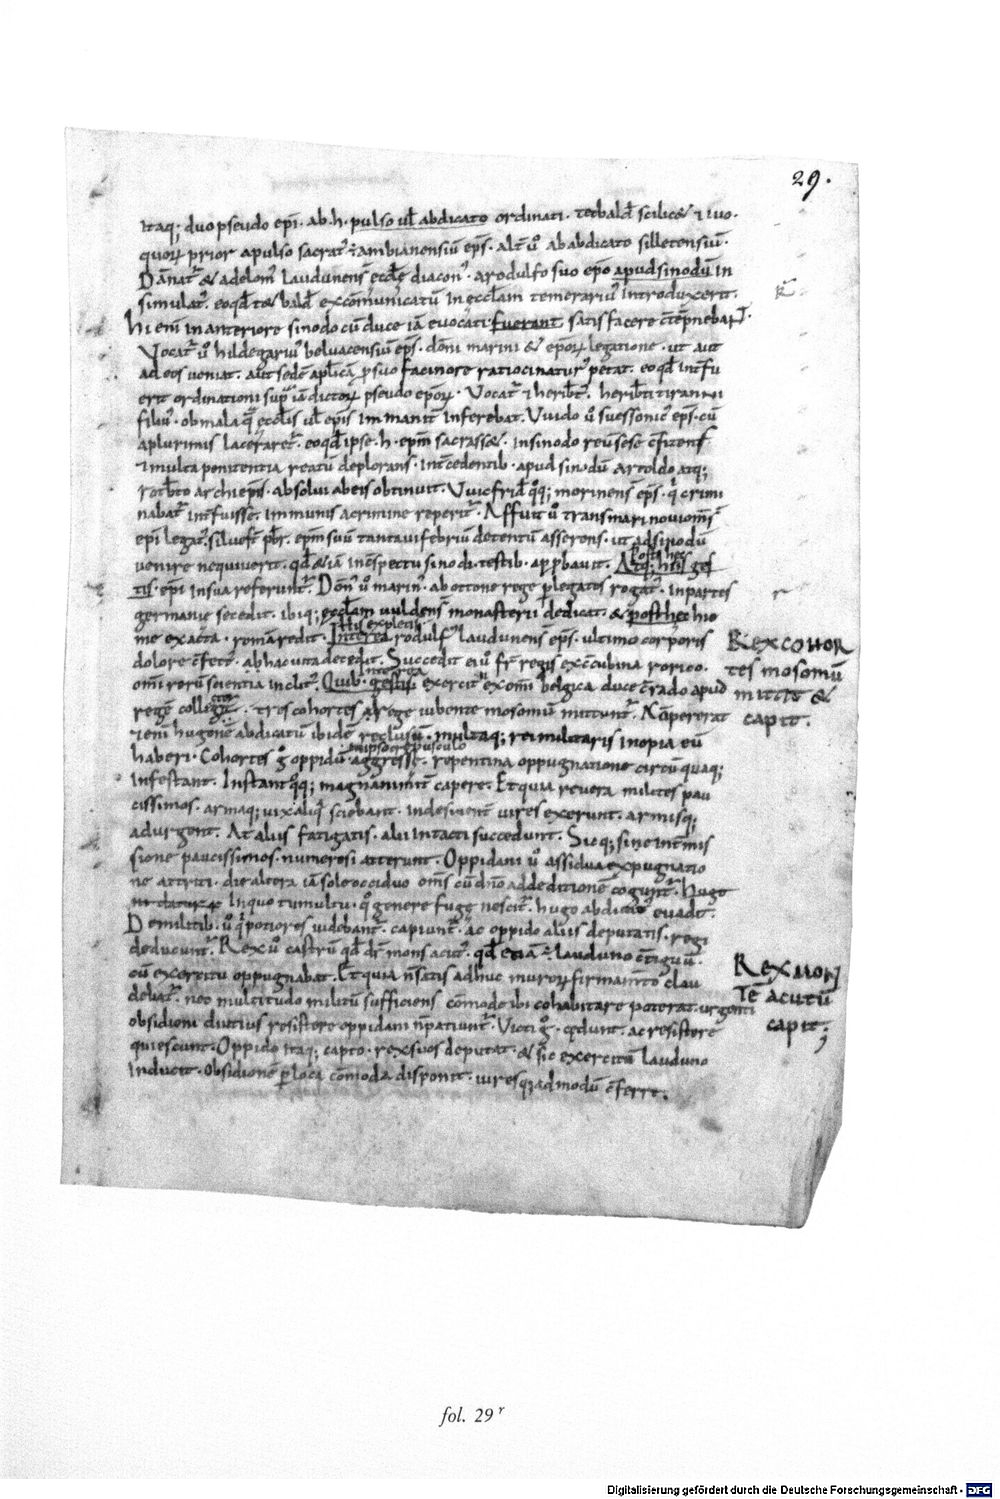 29.
Itaq; duo pseudo epi. ab .h. pulso ul abdicato ordinati. tetbald scilic& & iuo.
quorꝝ prior apulso sacrat' ÷ ambianensiū eps. alt' u° ab abdicato silletensiū.
Dānat' & adelom' laudunens' ęcclę diacon'. arodulfo suo epo apud sinodū in
simulat'. eoqd tetbald excōmunicatū in ęcclam temerariu' introduxerit.
hi eni in anteriore sinodo cū duce iā euocati fuerant. satisfacere ctēpnebaɴT.
Vocat' u° hildegariu' beluacensiū eps. domi marini & eporꝝ legatione. ut aut
ad eos ueniat. aut sedē aplicā p suo facinore ratiocinatur' petat. eo qd intfu
erit ordinationi supͣ iā dictorꝝ pseudo eporꝝ. Vocat' & herib't'. herib'ti tiranni
filiu'. ob mala quę ęcclis ul epis immanit' inferebat. Vuido u° suessonic' eps. cū
a plurimis laceraret'. eo qd ipse .h. epm sacrass&. in sinodo reū sese cfitens
& multa penitentia reatū deplorans. intcedentib. apud sinodū artoldo atq;
rotb'to archiepis. absolui ab eis obtinuit. Vuicfrid' q°q; morinens' eps. q' crimi
nabat' intfuisse. immunis a crimine reperit'. Affuit u° transmari noviom's
epi legat'. siluest' pbr. epm suū tanta ui febriū detentū asserens. ut ad sinodū
uenire nequiuerit. qd & iā incspectu sinodi. testib. apprbauit. Atq; his ges
Post hęc
tis. epi in sua referunt'. Domn' u° marin'. ab ottone rege p legatos rogat'. in partes
germanię secedit. ibiq; ęcclam uuldens' monasterii dedicat. & post hęc hie
me exacta. romā redit. Interea rodulf' laudunens' eps. ultimo corporis
His expletis
dolore cfect'. ab hac uita decedit. Succedit ei u° fr regis ex ccubina rorico.
omi rerū scientia inclit'. Quib. gestis exercit' ex omi belgica duce crado apud
Interea
regē collect'. tres cohortes a rege iubente mosomū mittunt'. Kcpererat
& eni hugonē abdicatū ibidē reclusū. multaq; rei militaris inopia eū
haberi. Cohortes g° oppidū aggresse. repentina oppugnatione circūquaq;
in ipso crepusculo
infestant. Instant q°q; magnanimit' capere. Et quia reuera milites pau
cissimos. armaq; uix aliq' sciebant. indesinent' uires exerunt. armisq;
adurgent. At aliis fatigatis. alii intacti succedunt. Sicq; sine intmis
sione paucissimos. numerosi atterunt. Oppidani u° assidua expugnatio
ne attriti. die altera iā sole occiduo oms cū dno ad deditionē cogunt'. Hugo
In quo tumultu. q° genere fugę nescit'. hugo abdictu' euadit.
De militib. u° q' potiores uidebant'. capiunt'. ac oppido aliis deputatis. regi
deducunt'. Rex u° castrū qd dr mons acut'. qd etiā ÷ lauduno ctiguū.
cū exercitu oppugnabat. Et quia nsatis adhuc murorꝝ firmamto clau
debat'. nec multitudo militū sufficiens cōmode ibi cohabitare poterat. urgenti
obsidioni diutius resistere oppidani npatiunt'. Victi g°. cędunt. ac resistere
quiescunt. Oppido itaq; capto. rex suos deputat. & sic exercitū lauduno
inducit. Obsidionē p loca cōmoda disponit. uires q; admodū cferre.
Rex cohor
tes mosomū
mittit &
capit.
Rex mon
te acutū
capit;
fol. 29 r
Digitalisierung gefördert durch die Deutsche Forschungsgemeinschaft - DFG